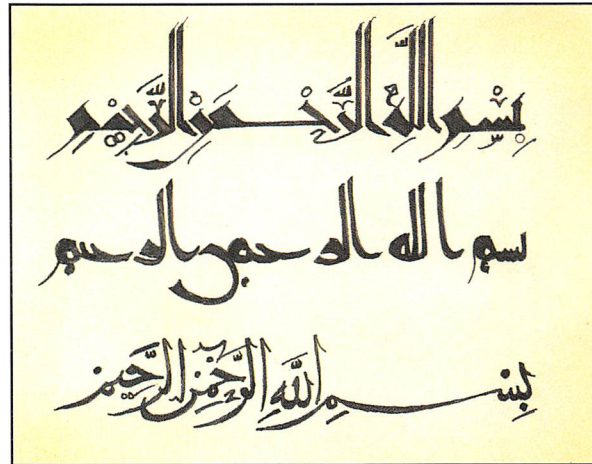 بِسْمِ اللَّهِ الرَّحْمَنِ الرَّحِيمِ
بسم الله الرحمن الرحيم
بِسْمِ اللَّهِ الرَّحْمَنِ الرَّحِيمِ